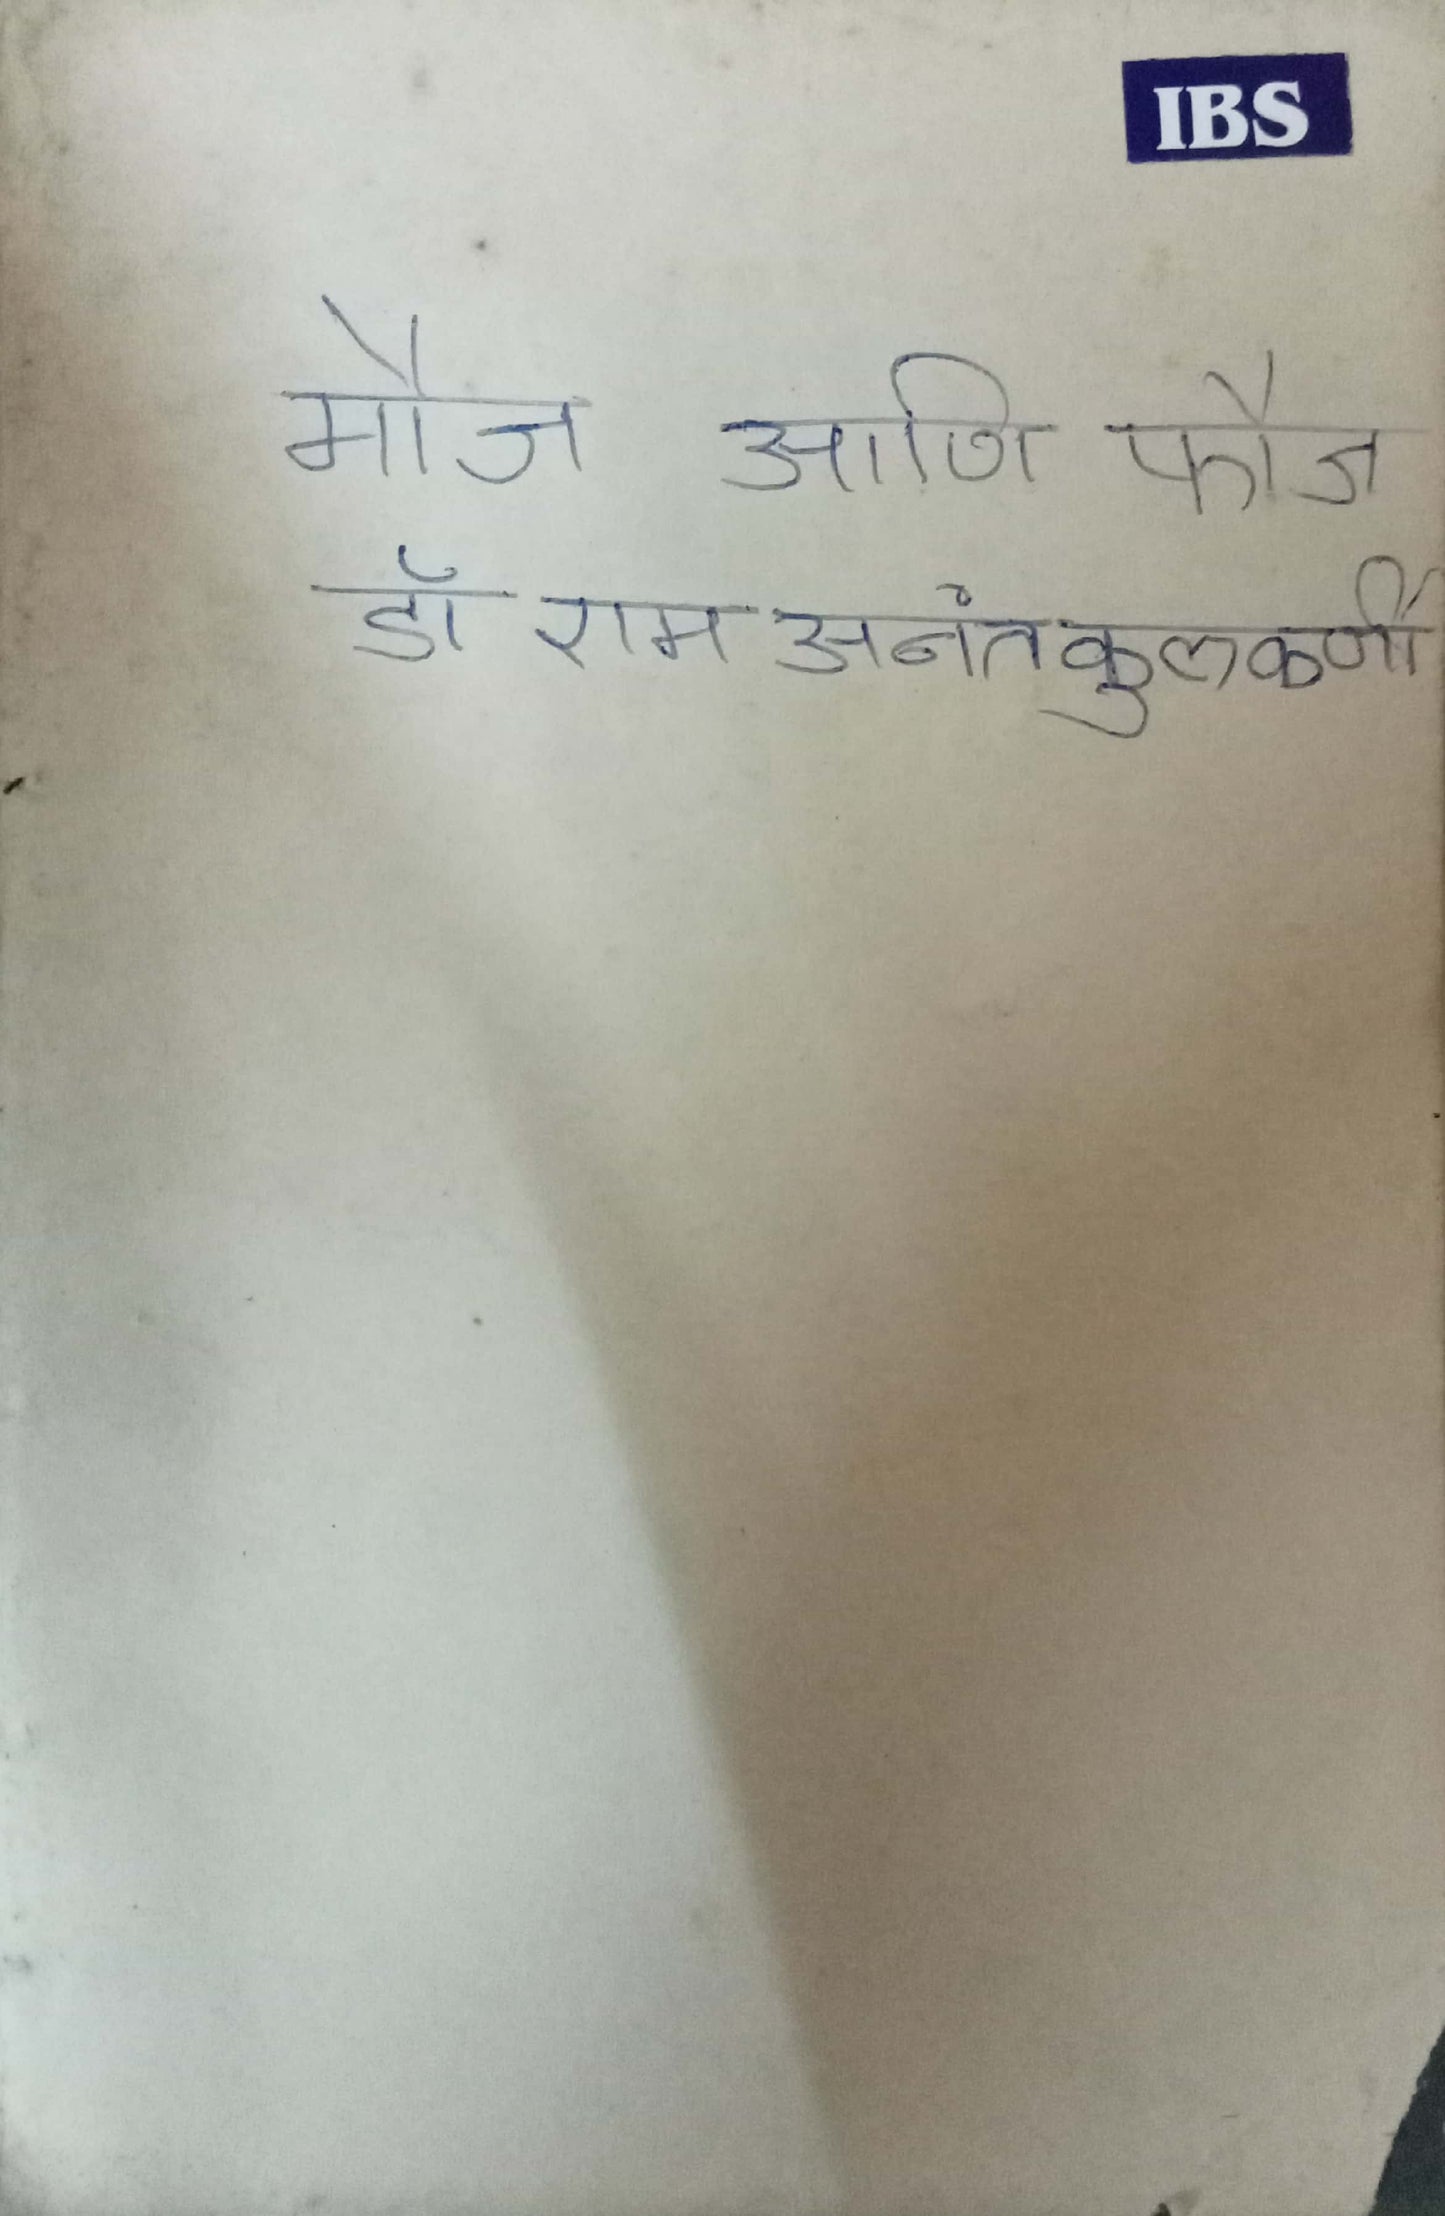 IBS
मौज आणि फौज
डॉ राम अनंत कुलकर्णी